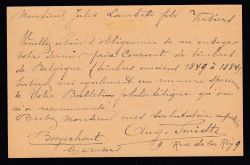 Monsieur Jules Lambotte fils Verviers
Veuillez avoir l'obligeance de m'envoyer
votre dernier prix Courant de timbres
de Belgique (timbres anciens 1849 à 1884)
ainsi également un numéro
de Votre Bulletin philatélique
si recommandé.
Recevez Monsieur mes salutations
Borgerhout Aug. Smidts
9 Rue de la 9